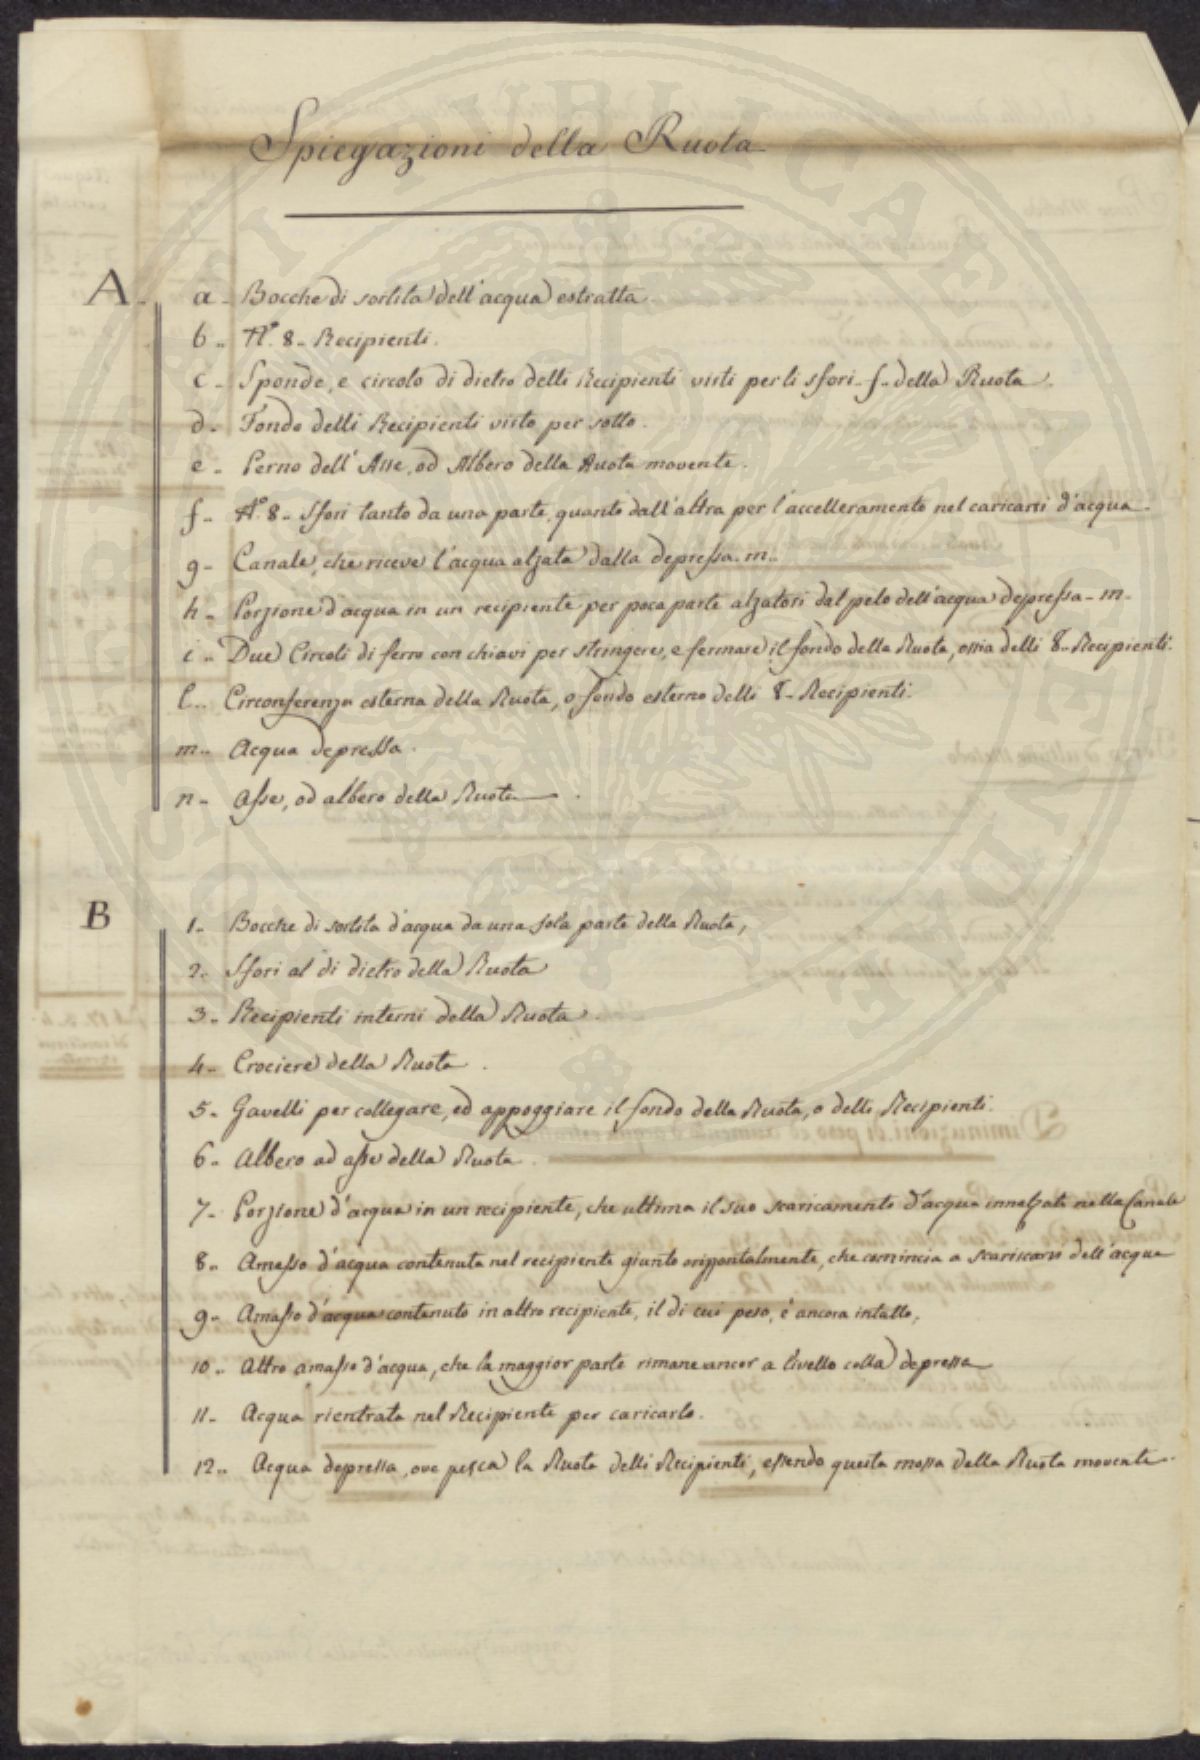 Spiegazioni della Ruota
A. a. Bocche di sortita dell'acqua estratta
b.. N.° 8. Recipienti.
c. Sponde, e circolo di dietro delli Recipienti visti per li sfori. f. della Ruota.
d. Fondo delli Recipienti visto per sotto.
e. Perno dell'Asse, od Albero della Ruota movente.
f. N.° 8. Sfori tanto da una parte, quanto dall'altra per l'accelleramento nel caricarsi d'acqua.
g. Canale, che riceve l'acqua alzata dalla depressa. m..
h. Porzione d'acqua in un recipiente per poca parte alzatosi dal pelo dell'acqua depressa. m.
i.. Due Circoli di ferro con chiavi per stringere, e fermare il fondo della Ruota, ossia delli 8. Recipienti.
l... Circonferenza esterna della Ruota, o fondo esterno delli 8. Recipienti.
m.. Acqua depressa.
n. Asse, od albero della Ruota.
B 1. Bocche di sortita d'acqua da una sola parte della Ruota,
2. Sfori al di dietro della Ruota
3. Recipienti interni della Ruota.
4. Crociere della Ruota.
5. Gavelli per collegare, ed appoggiare il fondo della Ruota, o delli Recipienti.
6. Albero ad asse della Ruota.
7. Porzione d'acqua in un recipiente, che ultima il suo scaricamento d'acqua innalzata nella Canale
8. Amasso d'acqua contenuta nel recipiente giunto orizzontalmente, che comincia a scaricarsi dell'acqua
9. Amasso d'acqua contenuto in altro recipiente, il di cui peso, è ancora intatto,
10.. Altro amasso d'acqua, che la maggior parte rimane ancor a livello colla depressa
11. Acqua rientrata nel Recipiente per caricarlo.
12.. Acqua depressa, ove pesca la Ruota delli Recipienti, essendo questa mossa della Ruota movente.